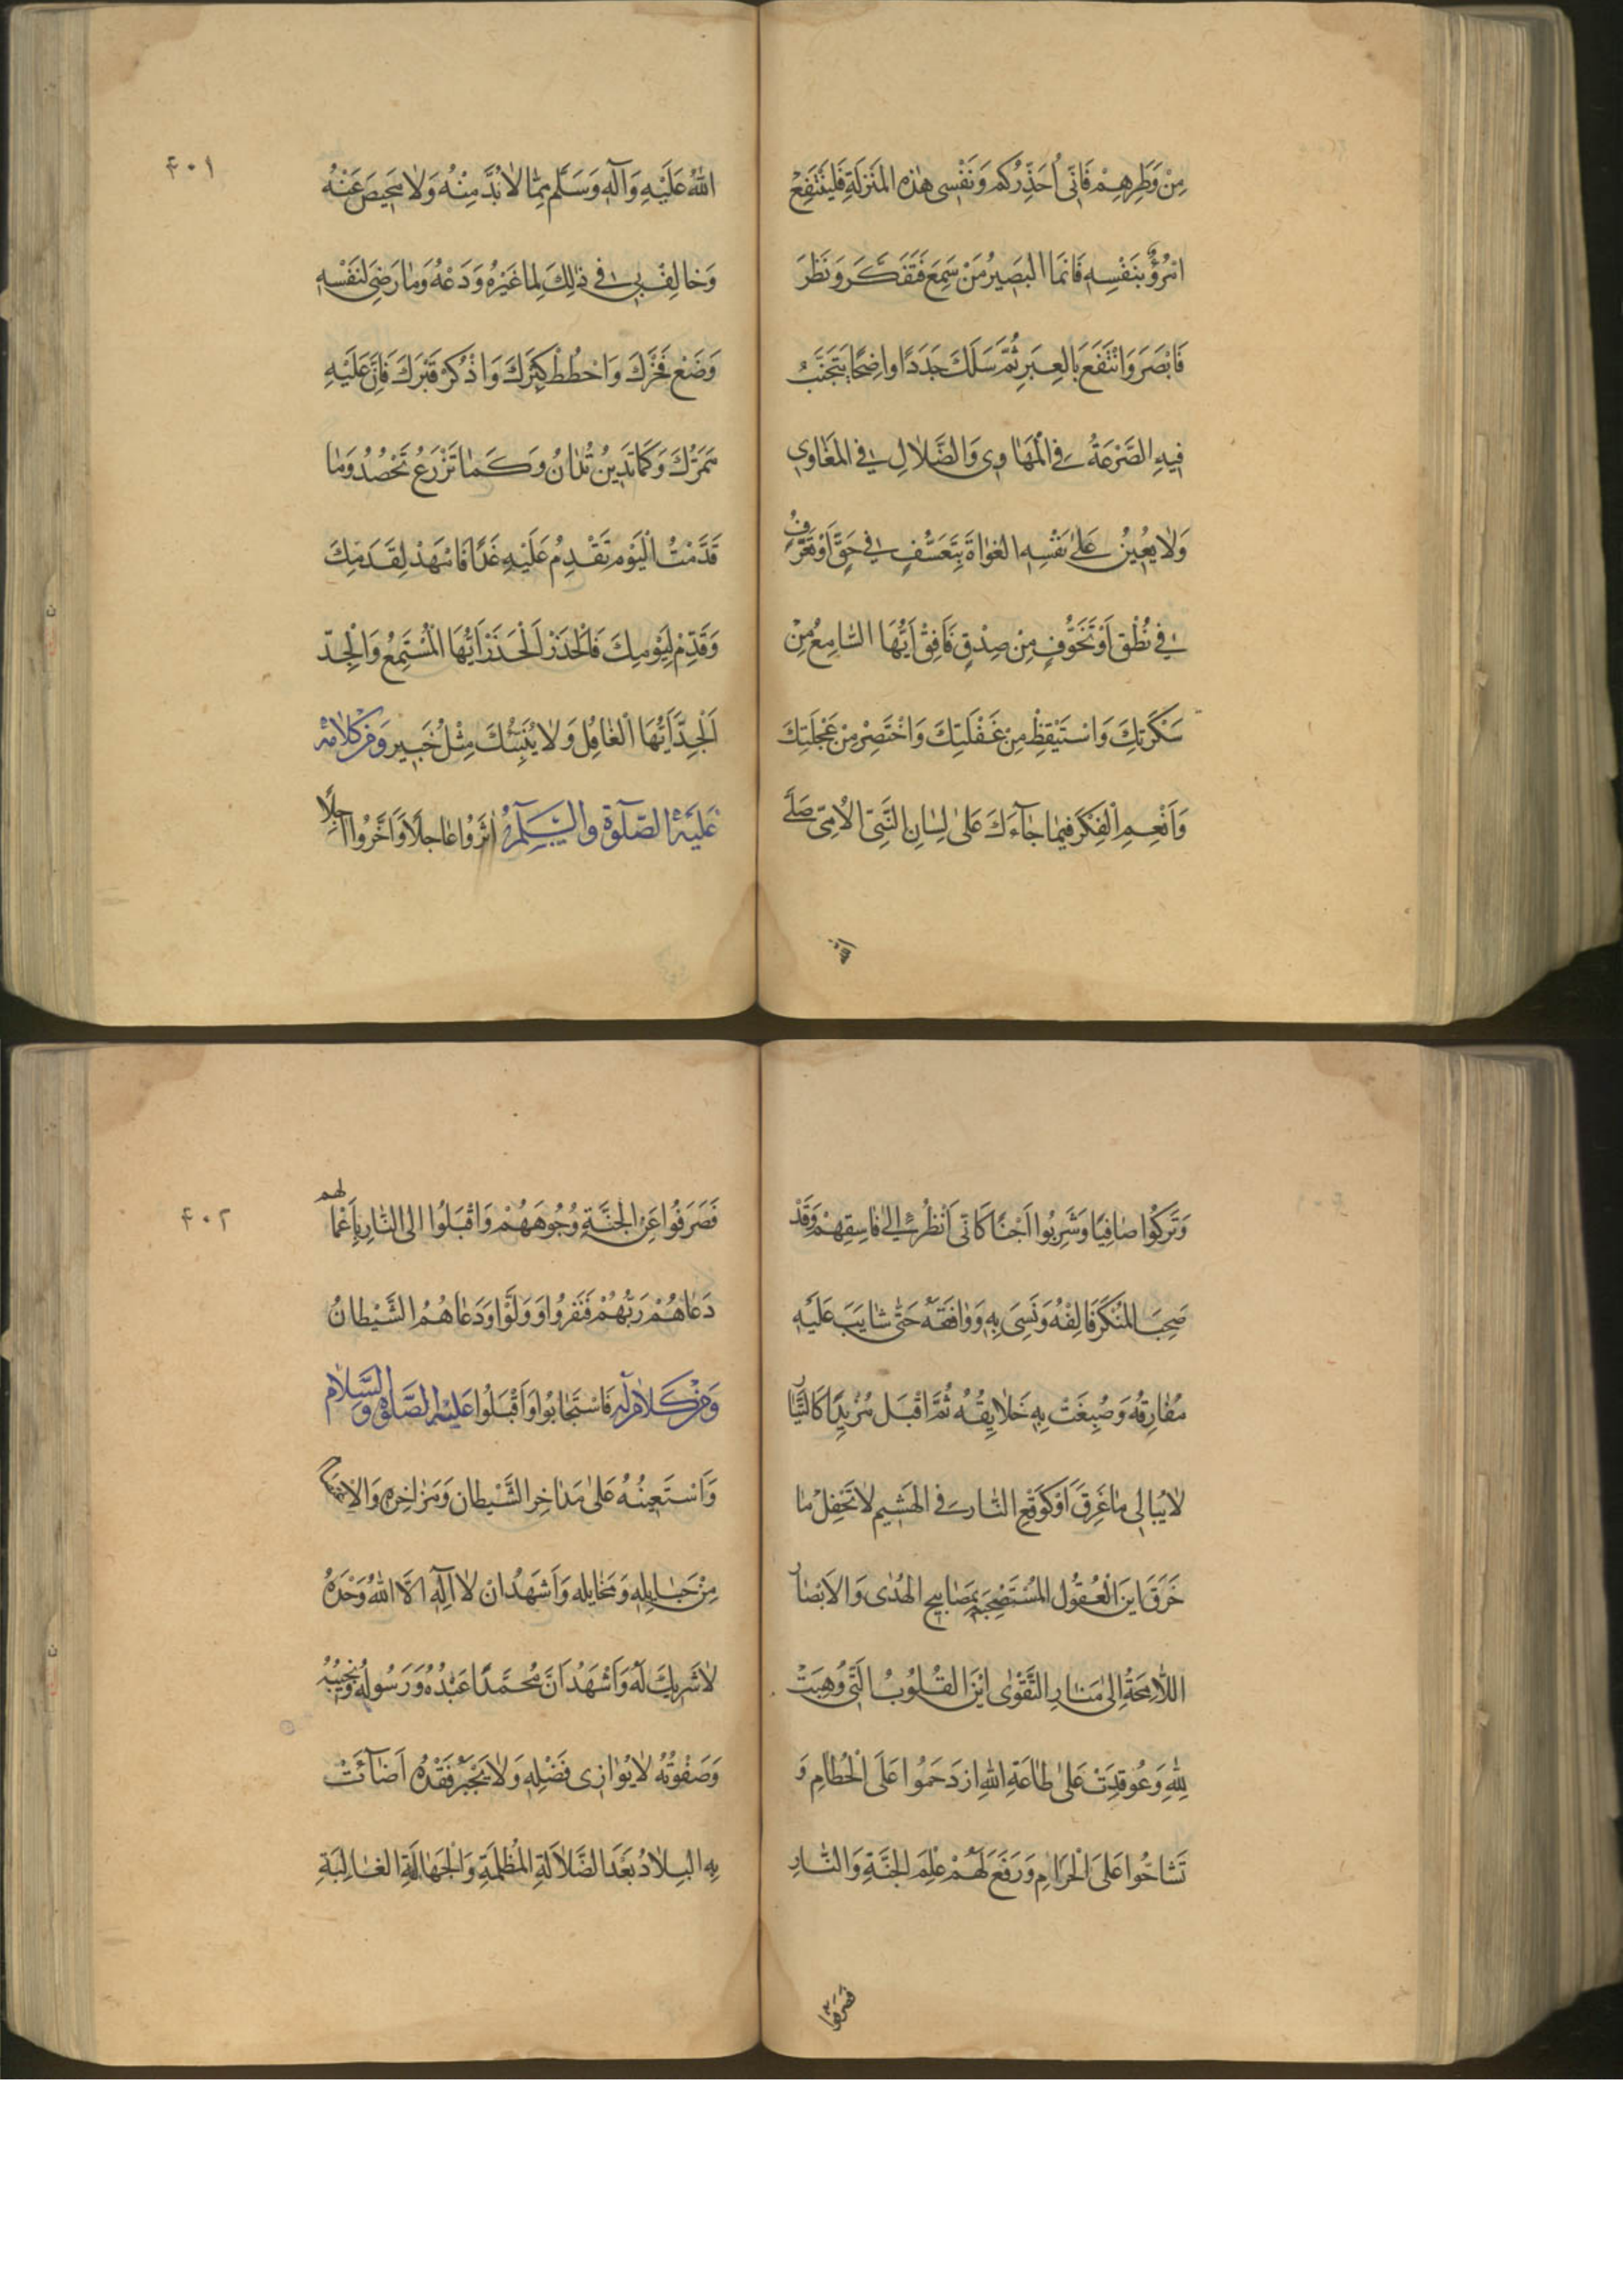 مِنْ وَطَرِهِمْ فَاِنّى اُحَذِّرُكُم وَنَفْسِى هٰذِهِ المَنزلَةِ فَليَنْتَفِعْ
امْرُؤٌ بِنَفْسِهِ فَاِنَّمَا البَصِيرُ مَنْ سَمِعَ فَتَفَكَّرَ وَنَظَرَ
فَابْصَرَ وَانْتَفَعَ بِالعِبَرِ ثُمَّ سَلَكَ جَدَدًا واضِحًا يَتَجَنَّبُ
فِيهِ الصَّرْعَةُ فى الْمَهَاوِى وَالضَّلالِ فى المَغَاوِى
وَلا يُعِينُ عَلىٰ نَفْسِهِ الغوٰاةَ بِتَعَسُّفٍ فى حَقٍّ اَوْ تَحَرُّفٍ
فى نُطْقٍ اَوْ تَخَوُّفٍ مِنْ صِدْقٍ فَاَفِقْ اَيُّهَا السَّامِعُ مِنْ
سَكْرَتِكَ وَاسْتَيْقِظْ مِنْ غَفْلَتِكَ وَاخْتَصِرْ مِنْ عَجْلَتِكَ
وَاَنْعِمِ الْفِكْرَ فيمٰا جٰآءَكَ عَلىٰ لِسٰانِ النَّبِىِّ الاُمِّىِّ صَلَّى
الله
۴۰۱
اللهُ عَلَيْهِ وَآلِهِ وَسَلَّم مِمّٰا لاٰبُدَّ مِنْهُ وَلاٰ مَحِيصَ عَنْهُ
وَخٰالِفْ فى ذٰلِكَ لِمٰا غَيْرُهُ وَدَعْهُ وَمٰا رَضِىَ لِنَفْسِهِ
وَضَعْ فَخْرَكَ وَاحْطُطْ كِبْرَكَ وَاذْكُرْ قَبْرَكَ فَاِنَّ عَلَيْهِ
مَمَرَّكَ وَكَمٰا تَدِينُ تُدٰانُ وَكَمٰا تَزْرَعُ تَحْصُدُ وَمٰا
قَدَّمْتَ الْيَوْمَ تَقْدِمُ عَلَيْهِ غَدًا فَامْهَدْ لِقَدَمِكَ
وَقَدِّمْ لِيَوْمِكَ فَالْحَذَرَ الْحَذَرَ اَيُّهَا الْمُسْتَمِعُ وَالْجِدَّ
اَلْجِدَّ اَيُّهَا الْغٰافِلُ وَلاٰ يُنَبِّئُكَ مِثْلُ خَبِيرٍ وَمِنْ كَلاٰمِهِ
عَلَيْهِ الصَّلٰوةُ والسَّلٰمُ اٰثَرُوا عٰاجِلًا وَاَخَّرُوا اٰجِلًا
وَتَرَكُوا صٰافِيًا وَشَرِبُوا اٰجِنًا كَاَنّى اَنْظُرُ اِلىٰ فٰاسِقِهِمْ وَقَدْ
صَحِبَ المُنْكَرَ فَاَلِفَهُ وَبَسِئَ بِهِ وَوٰافَقَهُ حَتّٰى شٰابَتْ عَلَيْهِ
مَفٰارِقُهُ وَصُبِغَتْ بِهِ خَلاٰيِقُهُ ثُمَّ اَقْبَلَ مُزْبِدًا كَالتَّيّٰارِ
لاٰ يُبٰالِى مٰا غَرِقَ اَوْ كَوَقْعِ النّٰارِ فى الهَشِيمِ لاٰ يَحْفِلُ مٰا
حَرَقَ اَيْنَ الْعُقُولُ المُسْتَصْبِحَةُ بِمَصٰابِيحِ الهُدٰى وَالاَبْصٰارُ
اللاّٰمِحَةُ اِلىٰ مَنٰارِ التَّقْوٰى اَيْنَ القُلُوبُ الَّتى وُهِبَتْ
لِلّٰهِ وَعُوقِدَتْ عَلىٰ طٰاعَةِ اللهِ ازدَحَمُوا عَلَى الْحُطٰامِ وَ
تَشٰاحُّوا عَلَى الْحَرٰامِ وَرَفَعَ لَهُمْ عَلَمَ الْجَنَّةِ وَالنّٰارِ
فصرفوا
۴۰۲
فَصَرَفُوا عَنِ الْجَنَّةِ وُجُوهَهُمْ وَاقْبَلُوا اِلى النّٰارِ بِاَعْمٰالهم
دَعٰاهُمْ رَبُّهُمْ فَنَفَرُوا وَوَلَّوْا وَدَعٰاهُمُ الشَّيْطٰانُ
فَاسْتَجٰابُوا وَاَقْبَلُوا وَمِنْ كَلاٰمٍ لَهُ عَلَيْهِ الصَّلٰوةُ وَالسَّلاٰم
وَاَسْتَعِينُهُ عَلىٰ مَدٰاحِرِ الشَّيْطٰانِ وَمَزٰاجِرِهِ وَالاِعْتِصٰامِ
مِنْ حَبٰايِلِهِ وَمَخٰايِلِهِ وَاَشْهَدُ اَنْ لاٰ اِلٰهَ اِلاَّ اللهُ وَحْدَهُ
لاٰ شَرِيكَ لَهُ وَاَشْهَدُ اَنَّ مُحَمَّدًا عَبْدُهُ وَرَسُولُهُ وَنَجِيبُهُ
وَصَفْوَتُهُ لاٰ يُوٰازى فَضْلُهُ وَلاٰ يُجْبَرُ فَقْدُهُ اَضٰآئَتْ
بِهِ البِلاٰدُ بَعْدَ الضَّلاٰلَةِ الْمُظْلِمَةِ وَالْجَهٰالَةِ الغٰالِبَةِ